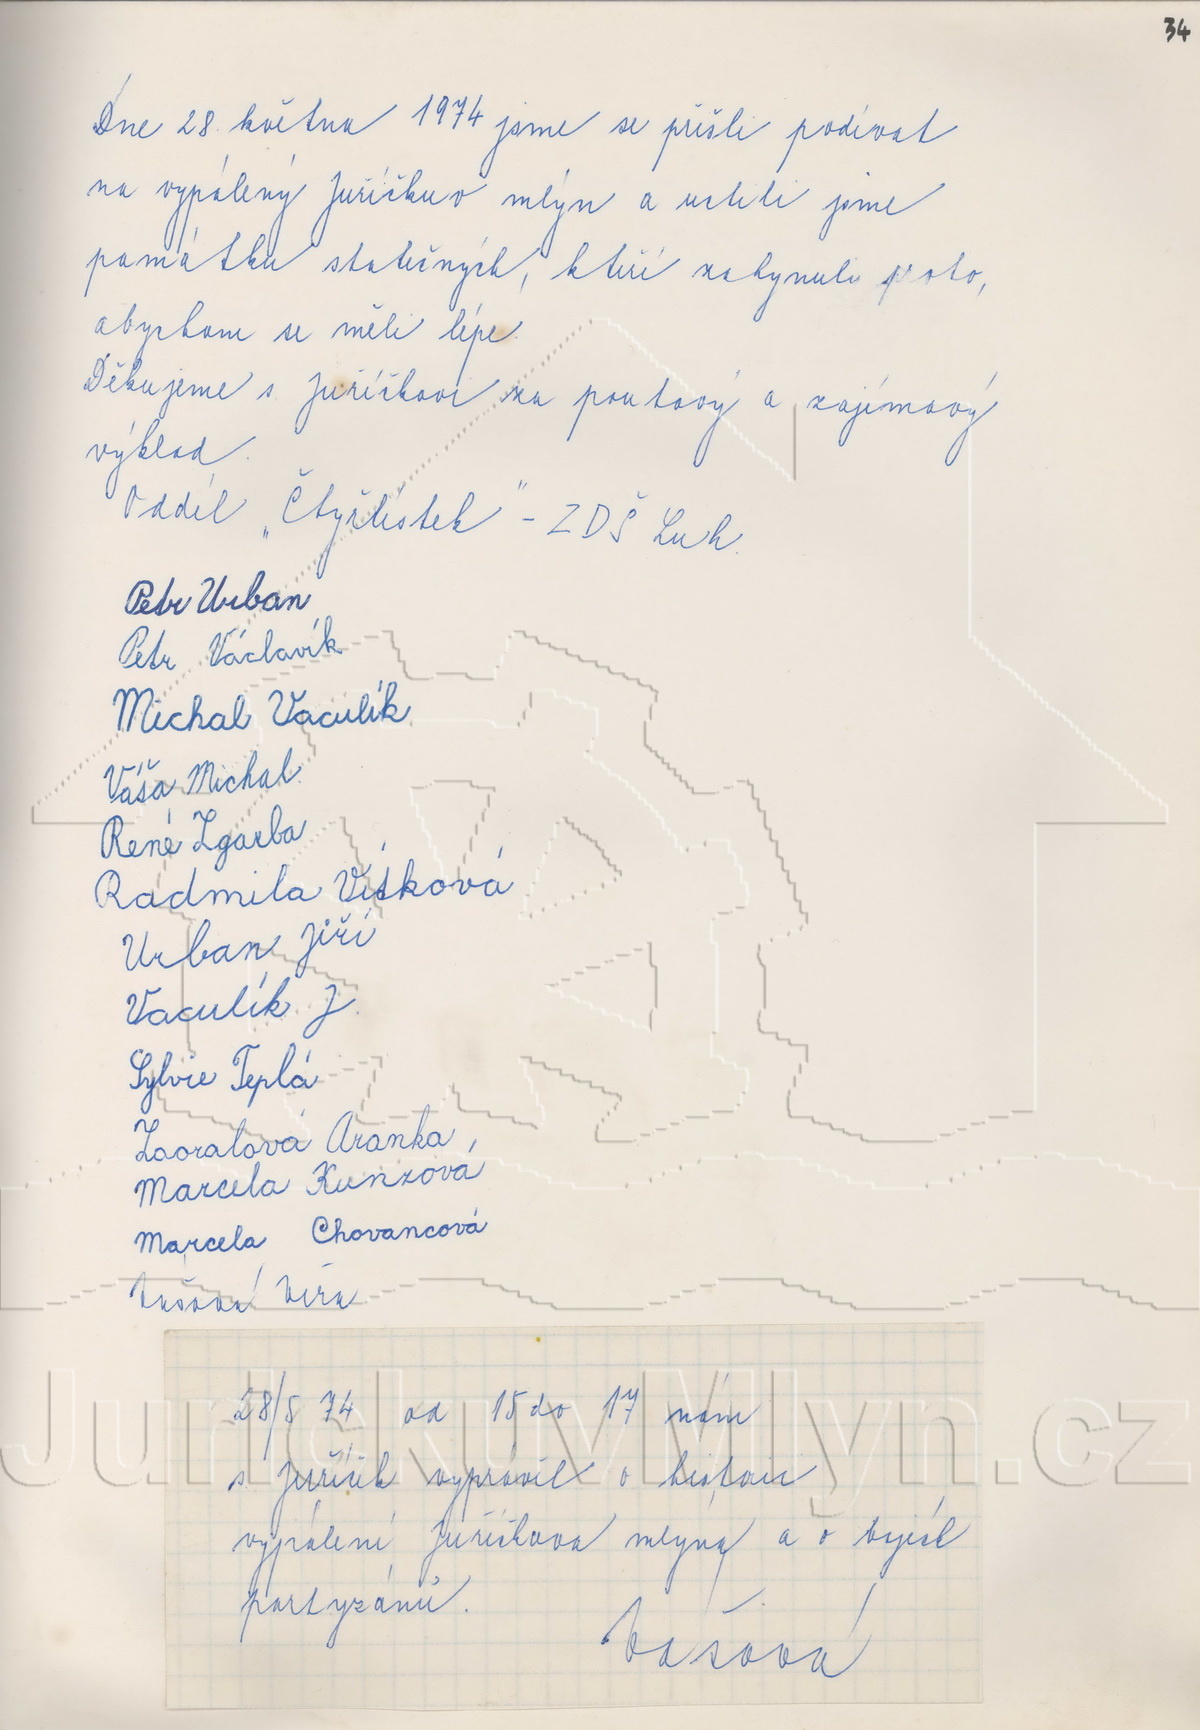 34
Dne 28. května 1974 jsme se přišli podívat
na vypálený Juříčkuv mlýn a uctili jsme
památku statečných, kteří zahynuli proto,
abychom se měli lépe.
Děkujeme s. Juříčkovi za poutavý a zajímavý
výklad.
Oddíl „Čtyřlístek" - ZDŠ Luh.
Petr Urban
Petr Václavík
Michal Vaculík
Váša Michal
René Zgarba
Radmila Vítková
Urban Jiří
Vaculík J.
Sylvie Teplá
Zaoralová Aranka,
Marcela Kunzová
Marcela Chovancová
Vašová Věra
28/5 74 od 15 do 17 nám
s. Juříček vyprávěl o historii
vypálení Juříčkova mlýna a o bojích
partyzánů.
Vašová
JurickuvMlyn.cz